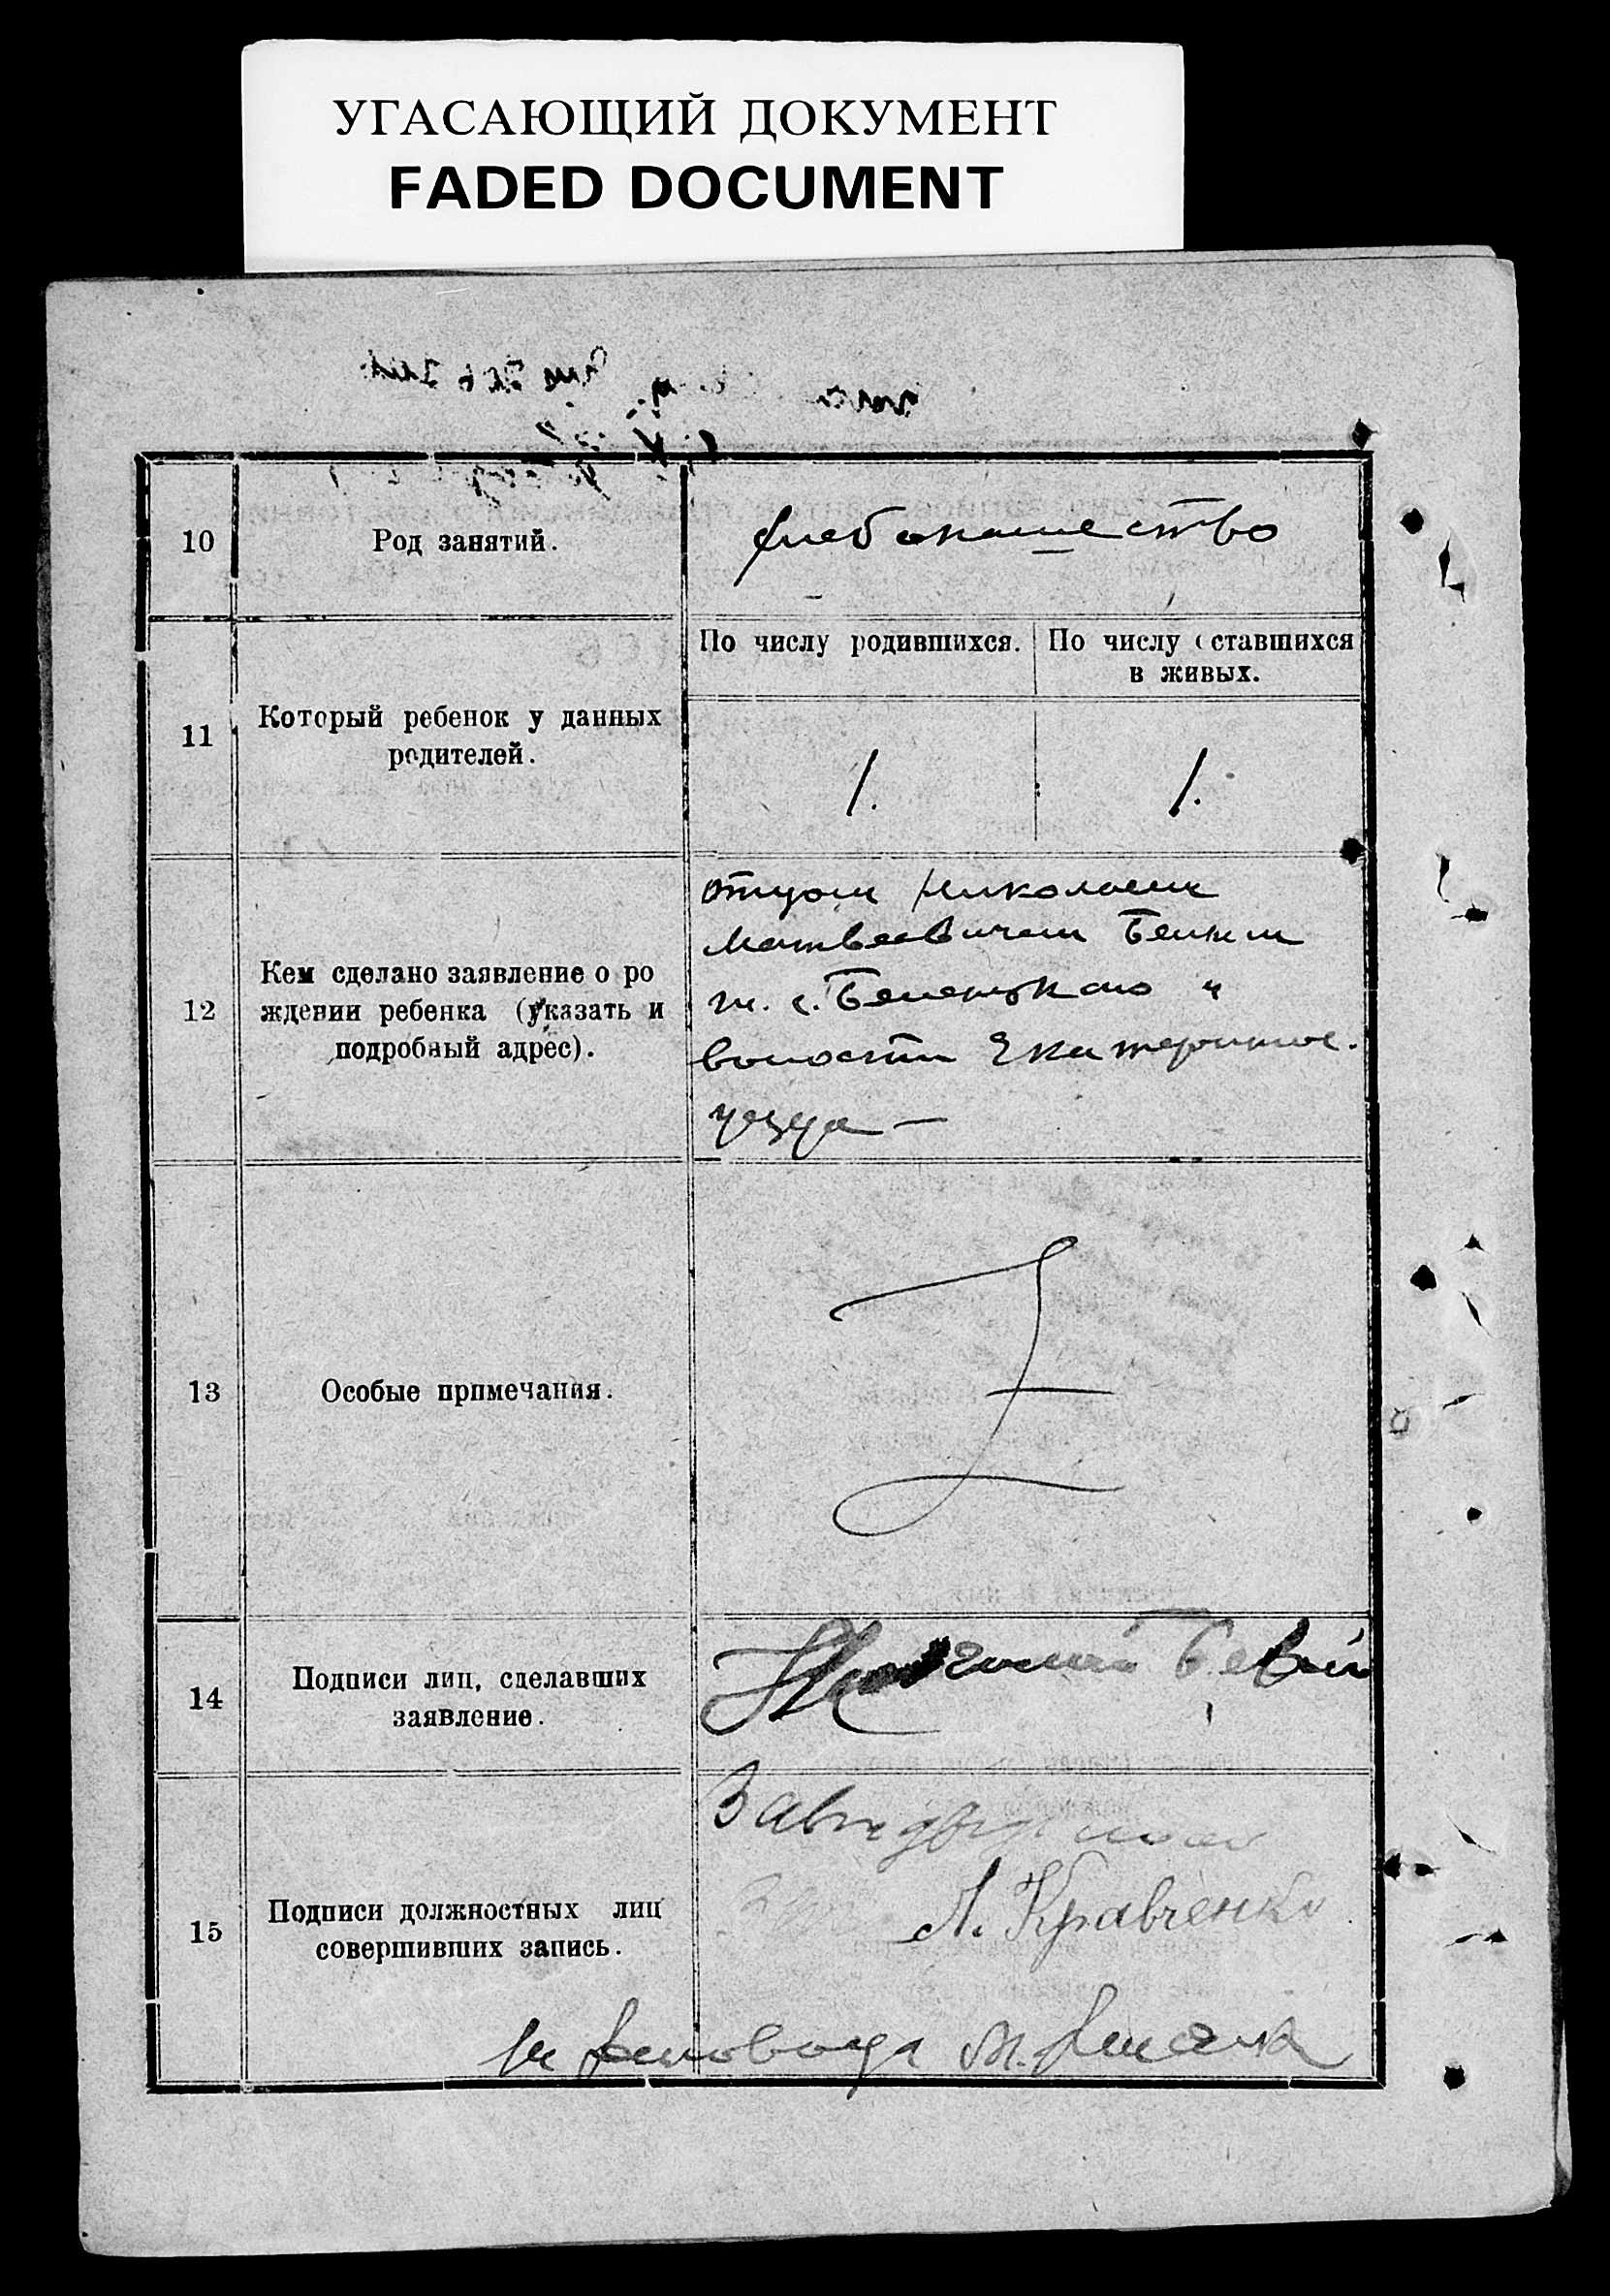 УГАСАЮЩИЙ ДОКУМЕНТ
FADED DOCUMENT
10
Род занятий.
хлебопашество
11
Который ребенок у данных
родителей.
По числу родившихся.
По числу оставшихся
в живых.
1.
1.
12
Кем сделано заявление о ро
ждении ребенка (указать и
подробный адрес).
отцом Николаем
Матвеевичем
ж. с.
волости Екатеринос.
уезда —
13
Особые примечания.
14
Подписи лиц, сделавших
заявление.
15
Подписи должностных лиц
совершивших запись.
Завед
Л. Кравченко